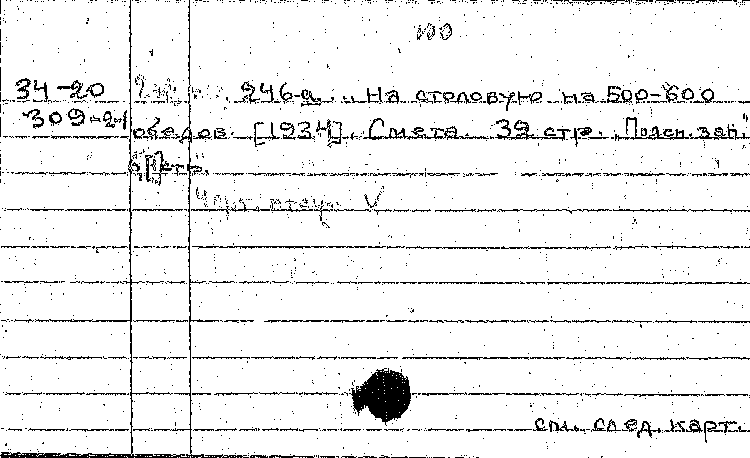 100
34-20 246-а. На столовую на 500-600
309-21 обедов. [1934]. Смета. 39 стр. "Поясн. зап."
см. след. карт.